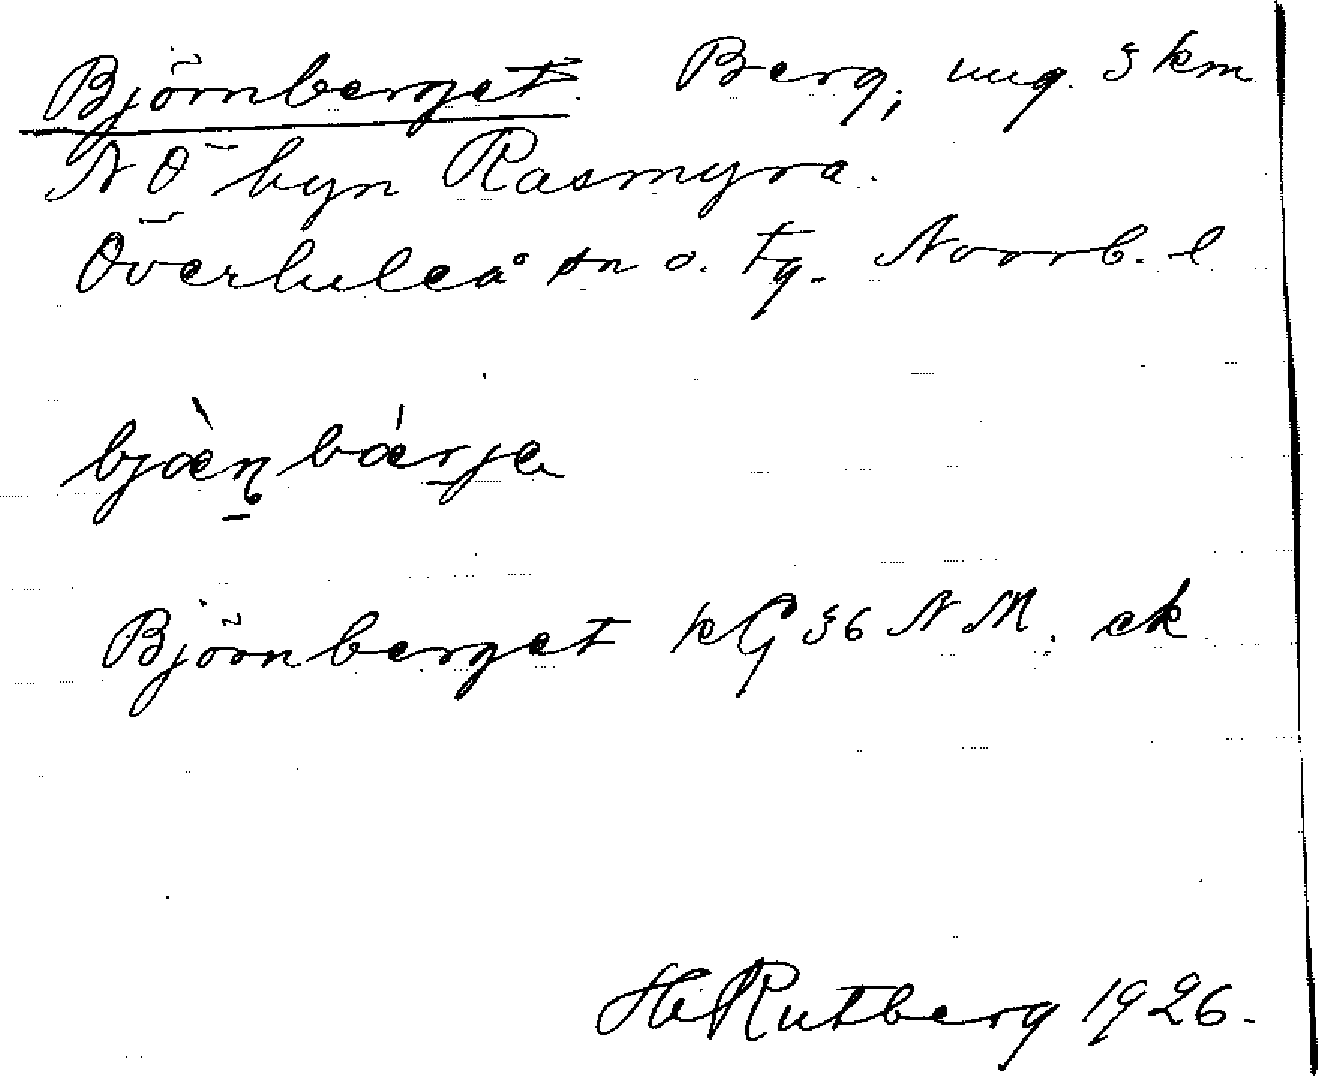 Björnberget. Berg, ung. 3 km
NÖ byn Rasmyra.
Överluleå sn o. tg. Norrb. l
bjὰṇbάrje
Björnberget kG 36 NM. ek
H. Rutberg 1926.